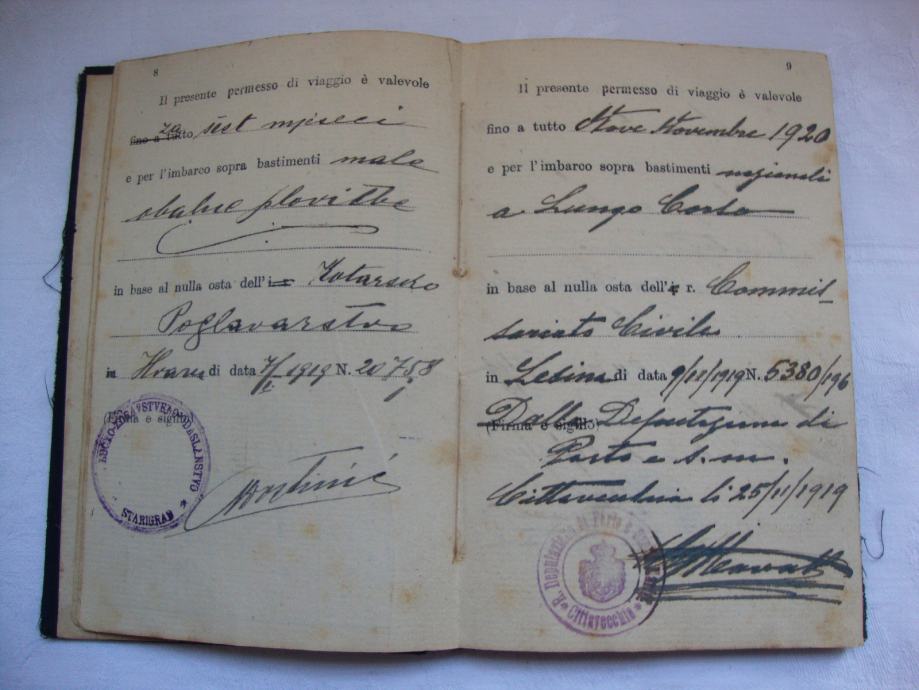 8
Il presente permesso di viaggio è valevole
fino a tutto za šest mjeseci
e per l'imbarco sopra bastimenti male
obalne plovitbe
in base al nulla osta dell'i. Kotarsko
Poglavarstvo
in Hvaru di data 7/I 1919 N. 20758
(Firma e sigillo)
STARIGRAD
9
Il presente permesso di viaggio è valevole
fino a tutto Nove Novembre 1920
e per l'imbarco sopra bastimenti nazionali
a Lungo Corso
in base al nulla osta dell'i. r. Commis=
sariato Civile
in Lesina di data 9/11/1919 N. 5380/196
(Firma e sigillo)
Dalla Deputazione di
Porto e s. m.
Cittavecchia li 25/11/1919
R. Deputazione di Porto e
Cittavecchia